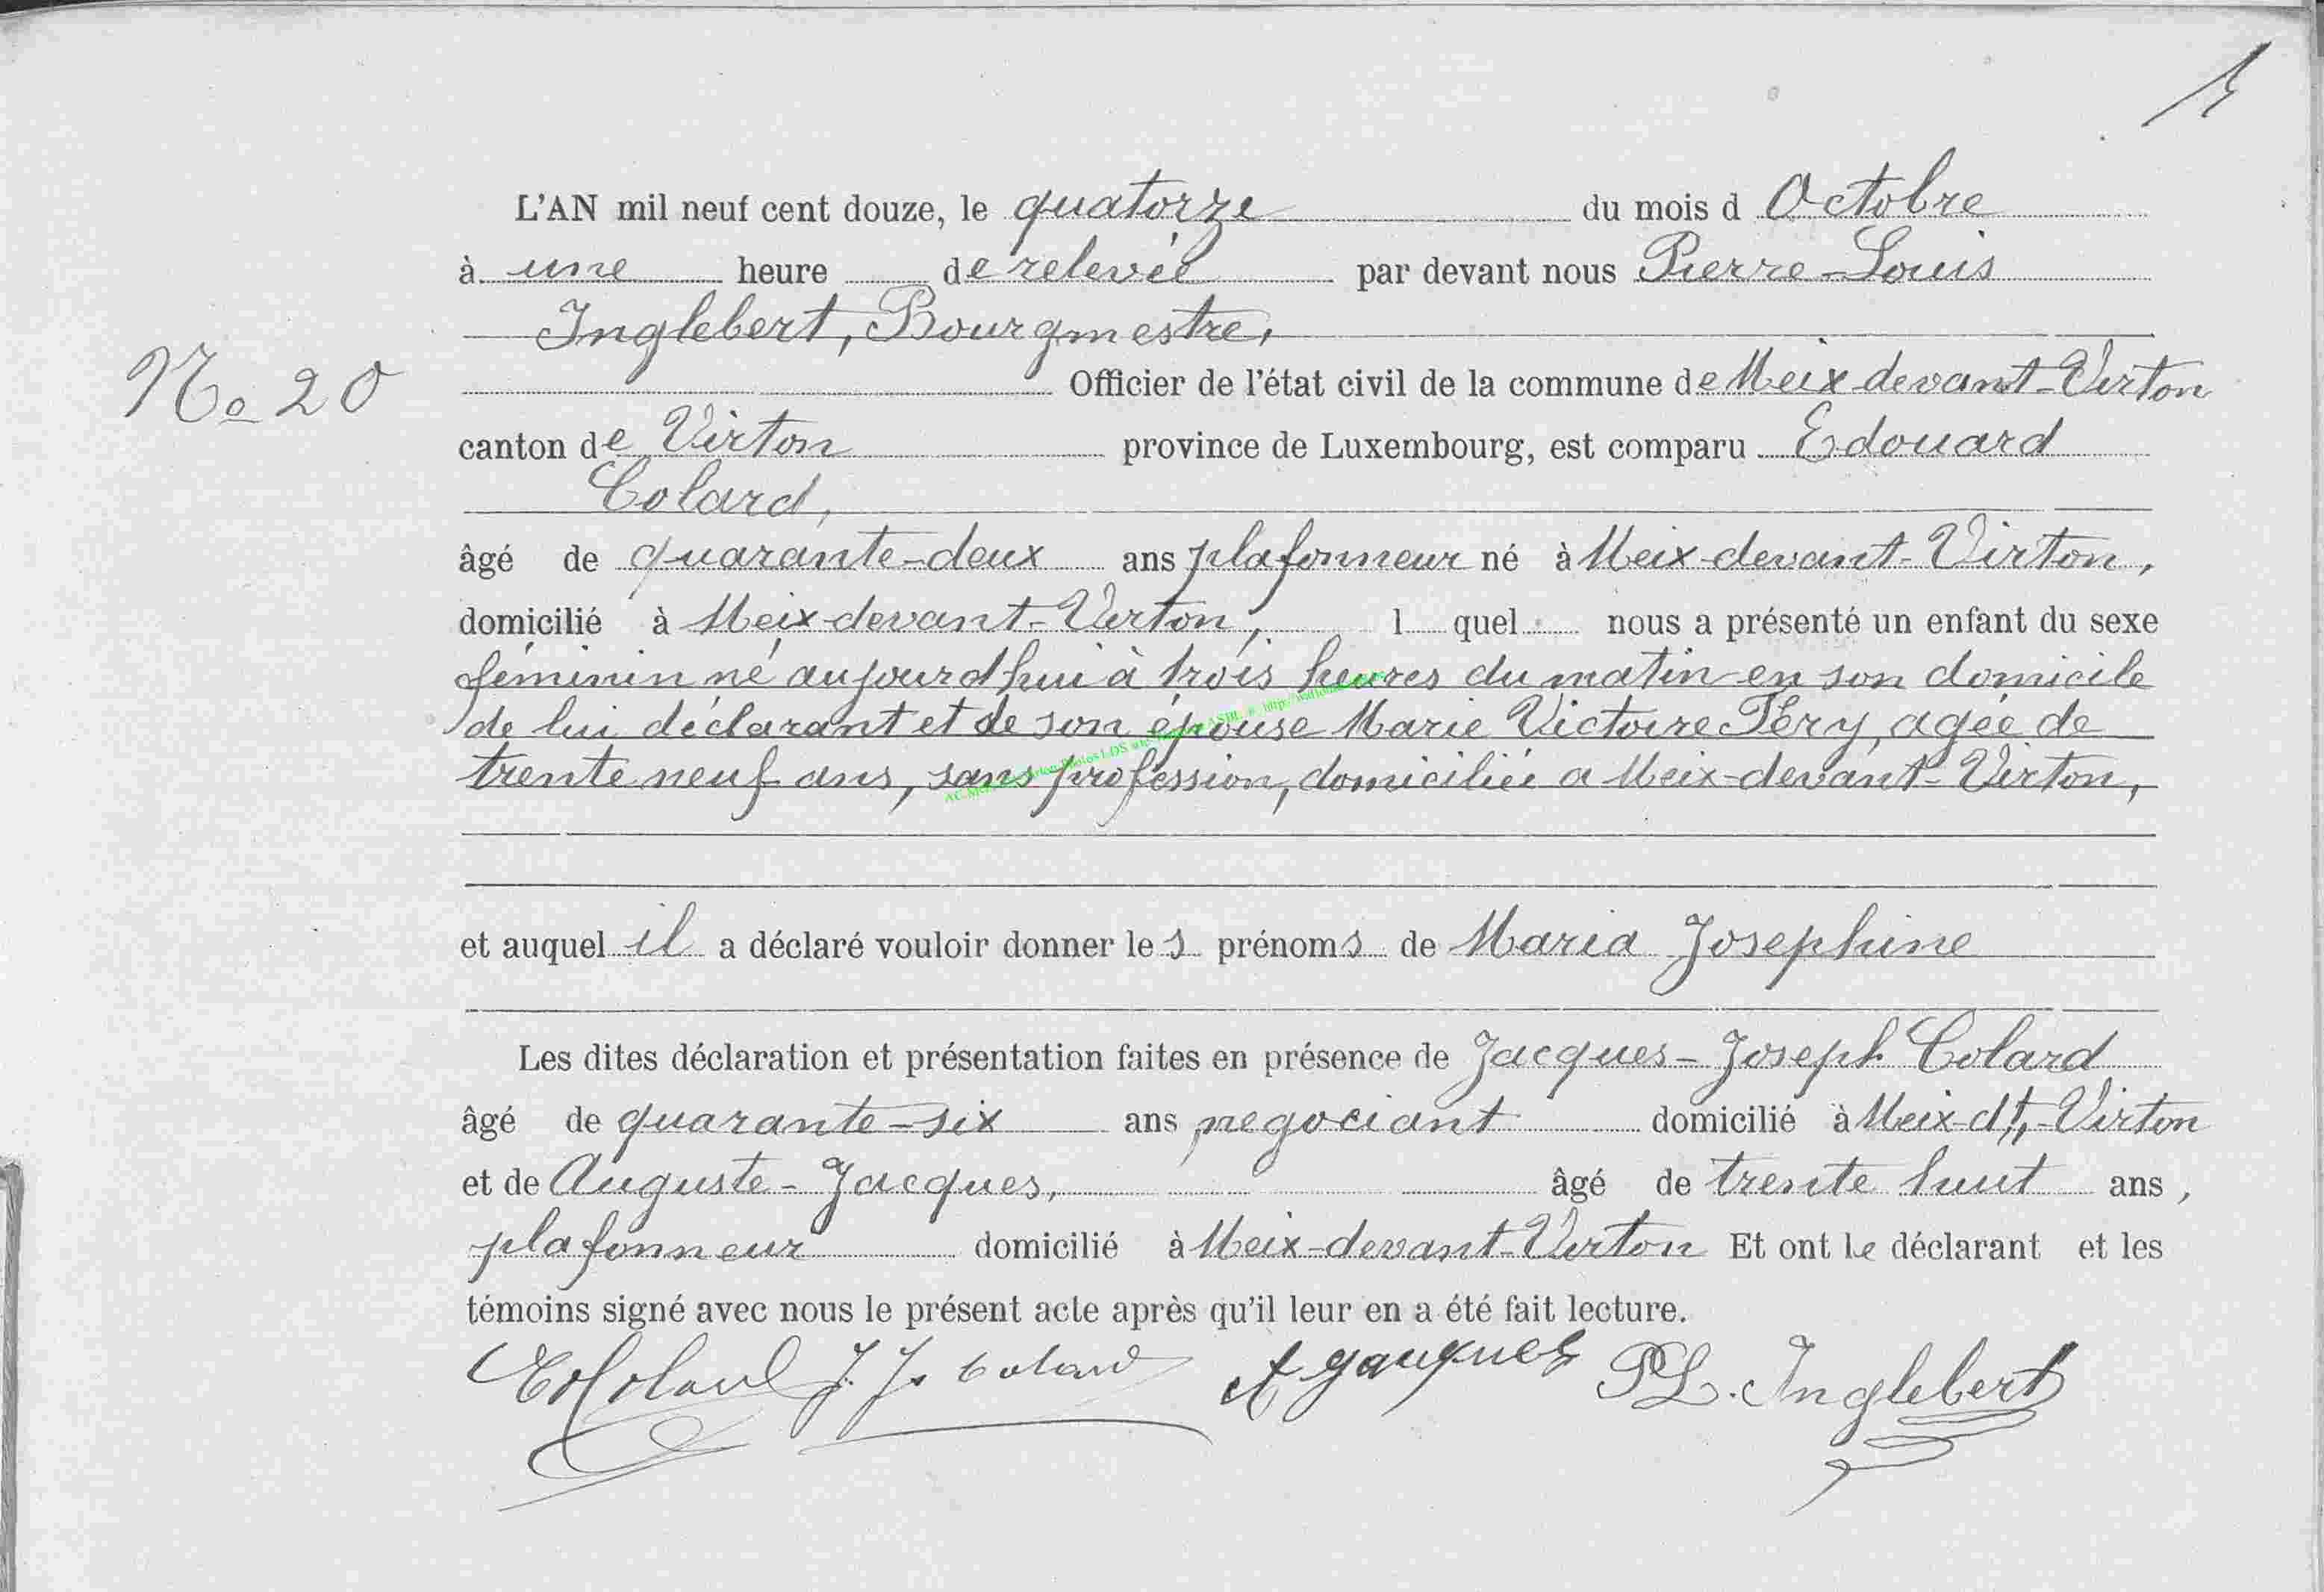 L'AN mil neuf cent douze, le quatorze du mois d Octobre
à une heure de relevée par devant nous Pierre-Louis
Inglebert, Bourgmestre,
N° 20
Officier de l'état civil de la commune de Meix-devant-Virton
canton de Virton province de Luxembourg, est comparu Edouard
Colard,
âgé de quarante-deux ans plafonneur né à Meix-devant-Virton,
domicilié à Meix-devant-Virton, l quel nous a présenté un enfant du sexe
féminin né aujourd'hui à trois heures du matin en son domicile
de lui déclarant et de son épouse Marie Victoire Féry, agée de
trente neuf ans, sans profession, domiciliée a Meix-devant-Virton,
et auquel il a déclaré vouloir donner les prénoms de Maria Josephine
Les dites déclaration et présentation faites en présence de Jacques-Joseph Colard
âgé de quarante-six ans negociant domicilié à Meix-dt,-Virton
et de Auguste-Jacques, âgé de trente huit ans,
plafonneur domicilié à Meix-devant-Virton Et ont le déclarant et les
témoins signé avec nous le présent acte après qu'il leur en a été fait lecture.
Ed Colard J. J. Colard A Jacques PL. Inglebert